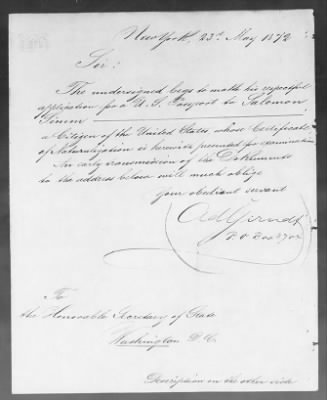 New York, 23d May 1872
Sir:
The undersigned begs to make his respectful
application for a U. S. Passport to Salomon
Simon
a Citizen of the United States whose Certificate
of Naturalization is herewith presented for examination
An early transmission of the Dokuments
to the address below will much oblige
your obedient servant
P. O. Box
To
the Honorable Secretary of State
Washington D. C.
Description on the other side